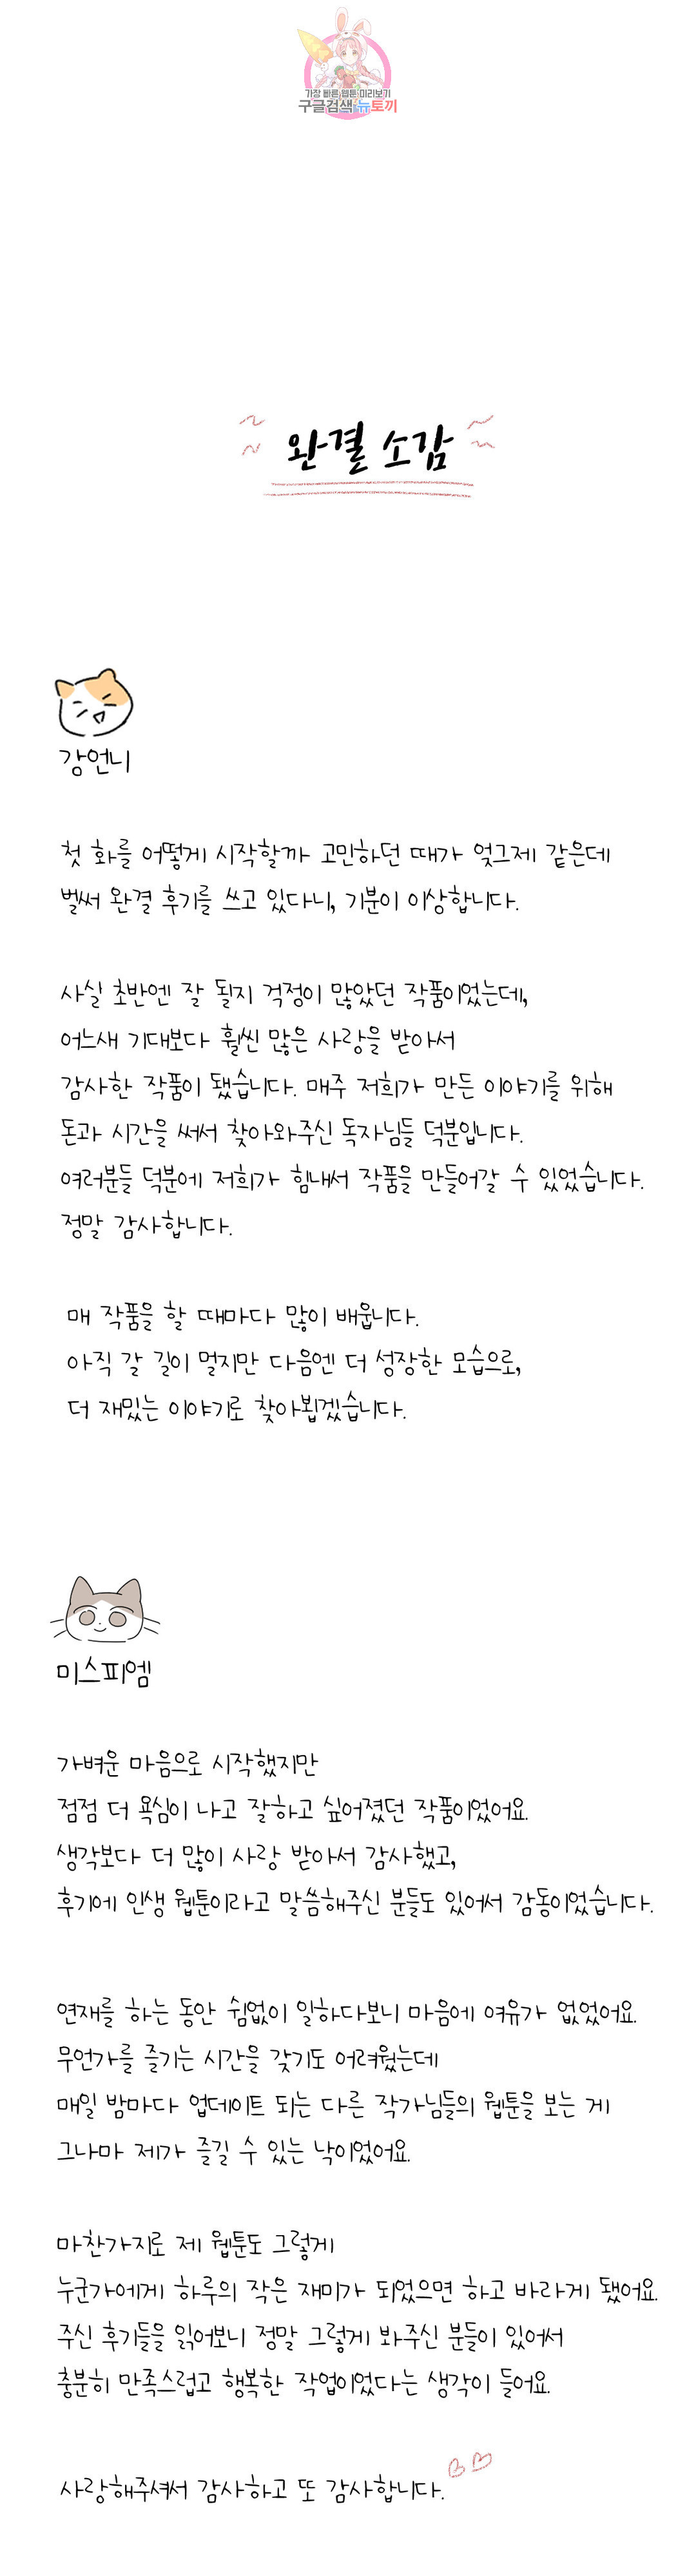 가장 빠른 웹툰 미리보기
구글검색 뉴토끼
완결 소감
강언니
첫 화를 어떻게 시작할까 고민하던 때가 엊그제 같은데
벌써 완결 후기를 쓰고 있다니, 기분이 이상합니다.
사실 초반엔 잘 될지 걱정이 많았던 작품이었는데,
어느새 기대보다 훨씬 많은 사랑을 받아서
감사한 작품이 됐습니다. 매주 저희가 만든 이야기를 위해
돈과 시간을 써서 찾아와주신 독자님들 덕분입니다.
여러분들 덕분에 저희가 힘내서 작품을 만들어갈 수 있었습니다.
정말 감사합니다.
매 작품을 할 때마다 많이 배웁니다.
아직 갈 길이 멀지만 다음엔 더 성장한 모습으로,
더 재밌는 이야기로 찾아뵙겠습니다.
미스피엠
가벼운 마음으로 시작했지만
점점 더 욕심이 나고 잘하고 싶어졌던 작품이었어요.
생각보다 더 많이 사랑 받아서 감사했고,
후기에 인생 웹툰이라고 말씀해주신 분들도 있어서 감동이었습니다.
연재를 하는 동안 쉼없이 일하다보니 마음에 여유가 없었어요.
무언가를 즐기는 시간을 갖기도 어려웠는데
매일 밤마다 업데이트 되는 다른 작가님들의 웹툰을 보는 게
그나마 제가 즐길 수 있는 낙이었어요.
마찬가지로 제 웹툰도 그렇게
누군가에게 하루의 작은 재미가 되었으면 하고 바라게 됐어요.
주신 후기들을 읽어보니 정말 그렇게 봐주신 분들이 있어서
충분히 만족스럽고 행복한 작업이었다는 생각이 들어요.
사랑해주셔서 감사하고 또 감사합니다.